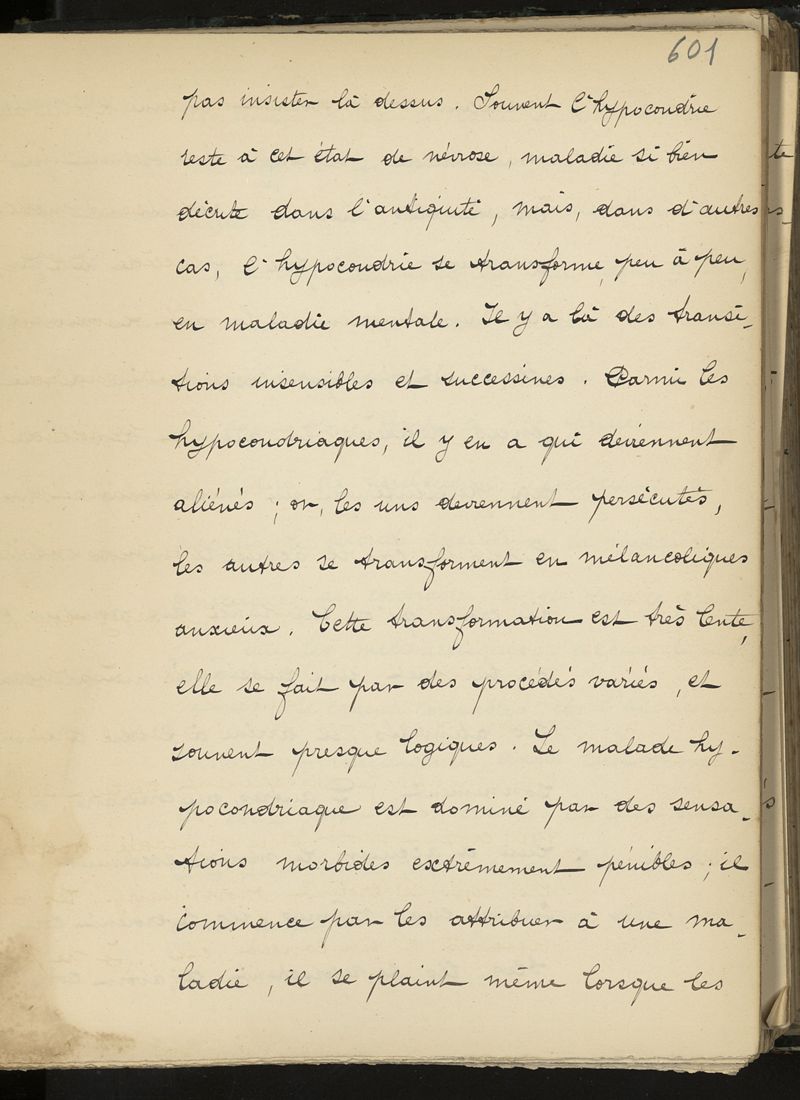 601
pas insister là dessus. Souvent l'hypocondrie
reste à cet état de névrose, maladie si bien
décrite dans l'antiquité, mais, dans d'autres
cas, l'hypocondrie se transforme, peu à peu,
en maladie mentale. Il y a là des transi-
tions insensibles et successives. Parmi les
hypocondriaques, il y en a qui deviennent
aliénés ; or, les uns deviennent persécutés,
les autres se transforment en mélancoliques
anxieux. Cette transformation est très lente,
elle se fait par des procédés variés, et
souvent presque logiques. Le malade hy-
pocondriaque est dominé par des sensa-
tions morbides extrêmement pénibles ; il
commence par les attribuer à une ma-
ladie, il se plaint même lorsque les